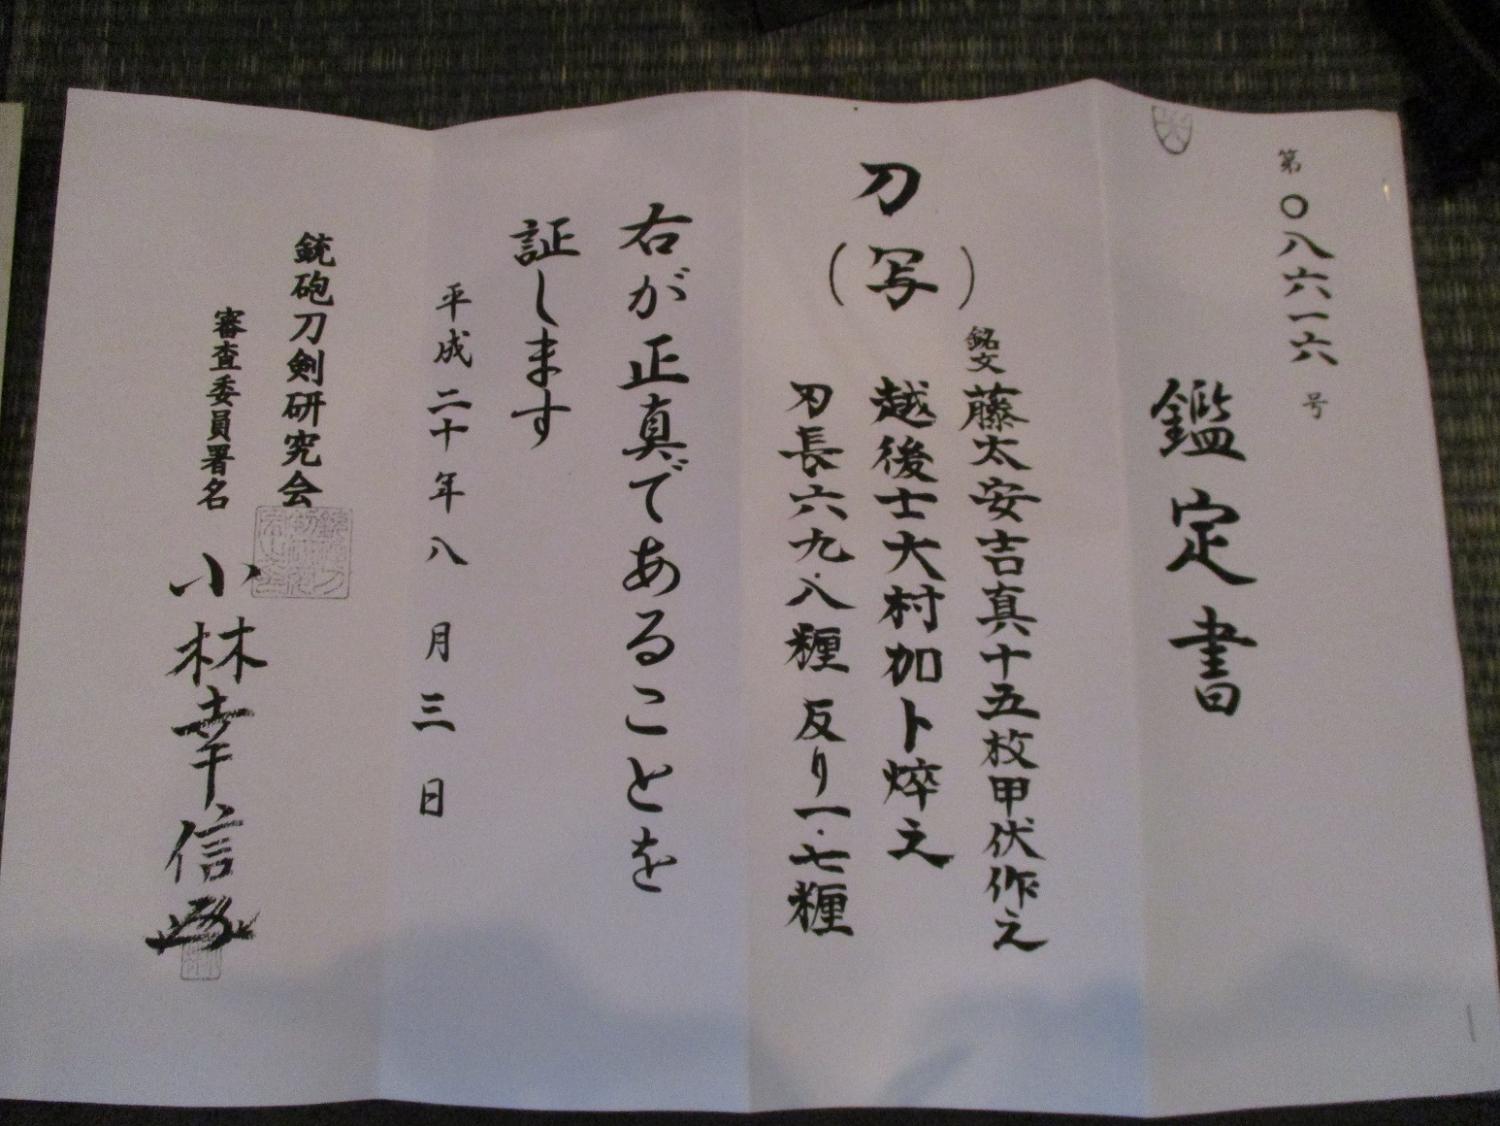 第〇八六一六号
鑑定書
刀（写）
銘文 藤太安吉真十五枚甲伏作之
越後士大村加卜焠之
刃長六九・八糎 反り一・七糎
右が正真であることを
証します
平成二十年八月三日
銃砲刀剣研究会
審査委員署名 小林幸信